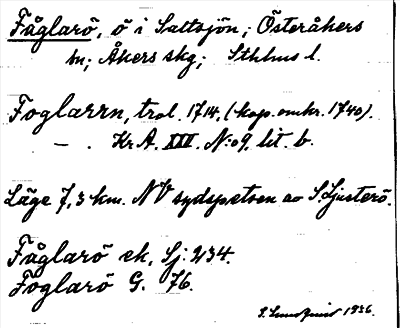 Fåglarö, ö i Saltsjön; Österåkers
sn; Åkers skg; Sthlms l.
Foglarrn, trol. 1714, (kop. omkr. 1740).
— . Kr A. XXX. N:o 9, lit. b.
Läge 7,3 km. NV sydspetsen av S. Ljusterö.
Fåglarö ek, Sj: 234.
Foglarö G. 76.
1936.